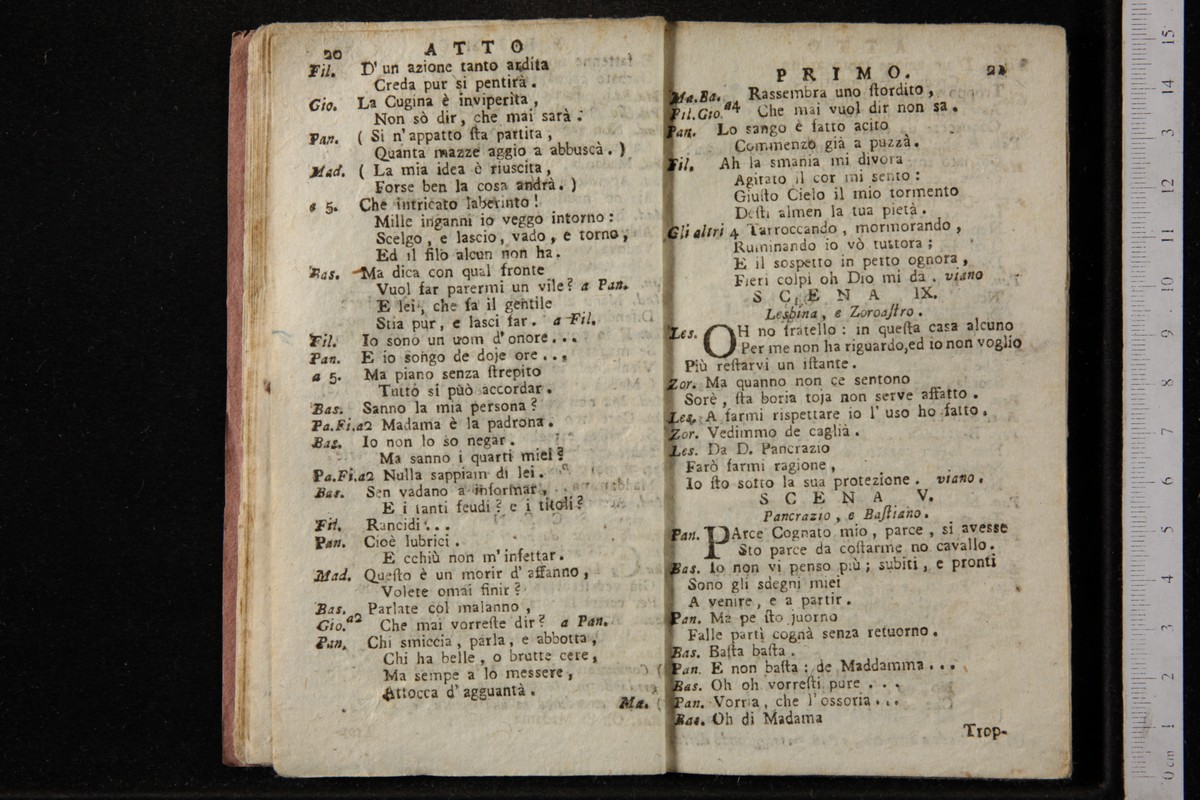 20 ATTO
Fil. D' un azione tanto ardita
Creda pur si pentirà.
Gio. La Cugina è inviperita,
Non sò dir, che mai sarà:
Pan. ( Si n' appatto ſta partita,
Quanta mazze aggio a abbuscà. )
Mad. ( La mia idea è riuscita,
Forse ben la cosa andrà. )
a 5. Che intricato laberinto!
Mille inganni io veggo intorno:
Scelgo, e lascio, vado, e torno,
Ed il filo alcun non ha.
Bas. Ma dica con qual fronte
Vuol far parermi un vile? a Pan.
E lei, che fa il gentile
Stia pur, e lasci far. a Fil.
Fil. Io sono un uom d' onore...
Pan. E io songo de doje ore...
a 5. Ma piano senza ſtrepito
Tutto si può accordar.
Bas. Sanno la mia persona?
Pa.Fi.a2 Madama è la padrona.
Bas. Io non lo so negar.
Ma sanno i quarti miei?
Pa.Fi.a2 Nulla sappiam di lei.
Bas. Sen vadano a informar,
E i tanti feudi? e i titoli?
Fil. Rancidi...
Pan. Cioè lubrici.
E cchiù non m' infettar.
Mad. Queſto è un morir d' affanno,
Volete omai finir?
Bas. Parlate col malanno,
Gio. a2 Che mai vorreſte dir? a Pan.
Pan. Chi smiccia, parla, e abbotta,
Chi ha belle, o brutte cere,
Ma sempe a lo messere,
Attocca d' agguantà.
Ma.
PRIMO. 21
Ma.Ba. Rassembra uno ſtordito,
Fil.Gio. a4 Che mai vuol dir non sa.
Pan. Lo sango è fatto acito
Commenzo già a puzzà.
Fil. Ah la smania mi divora
Agitato il cor mi sento:
Giuſto Cielo il mio tormento
Deſti almen la tua pietà.
Gli altri 4 Tarroccando, mormorando,
Ruminando io vò tuttora;
E il sospetto in petto ognora,
Fieri colpi oh Dio mi da. viano
SCENA IX.
Lesbina, e Zoroaſtro.
Les. OH no fratello: in queſta casa alcuno
Per me non ha riguardo, ed io non voglio
Più reſtarvi un iſtante.
Zor. Ma quanno non ce sentono
Sorè, ſta boria toja non serve affatto.
Les. A farmi rispettare io l' uso ho fatto.
Zor. Vedimmo de caglià.
Les. Da D. Pancrazio
Farò farmi ragione,
Io ſto sotto la sua protezione. viano.
SCENA V.
Pancrazio, e Baſtiano.
Pan. PArce Cognato mio, parce, si avesse
Sto parce da coſtarme no cavallo.
Bas. Io non vi penso più; subiti, e pronti
Sono gli sdegni miei
A venire, e a partir.
Pan. Ma pe ſto juorno
Falle partì cognà senza retuorno.
Bas. Baſta baſta.
Pan. E non baſta: de Maddamma...
Bas. Oh oh vorreſti pure...
Pan. Vorria, che l' ossoria...
Bas. Oh di Madama
Trop-